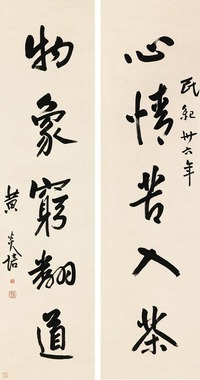 民紀卅六年
心情苦入茶
物象窮翻道
黄炎培